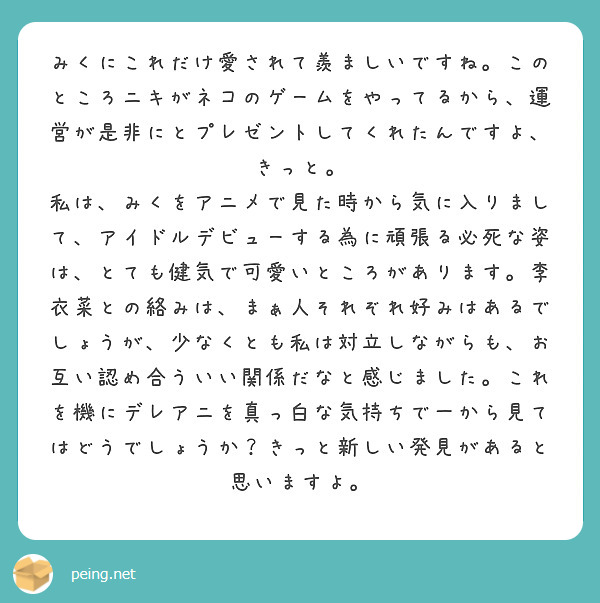 みくにこれだけ愛されて羨ましいですね。この
ところニキがネコのゲームをやってるから、運
営が是非にとプレゼントしてくれたんですよ、
きっと。
私は、みくをアニメで見た時から気に入りまし
て、アイドルデビューする為に頑張る必死な姿
は、とても健気で可愛いところがあります。李
衣菜との絡みは、まぁ人それぞれ好みはあるで
しょうが、少なくとも私は対立しながらも、お
互い認め合ういい関係だなと感じました。これ
を機にデレアニを真っ白な気持ちで一から見て
はどうでしょうか？きっと新しい発見があると
思いますよ。
peing.net